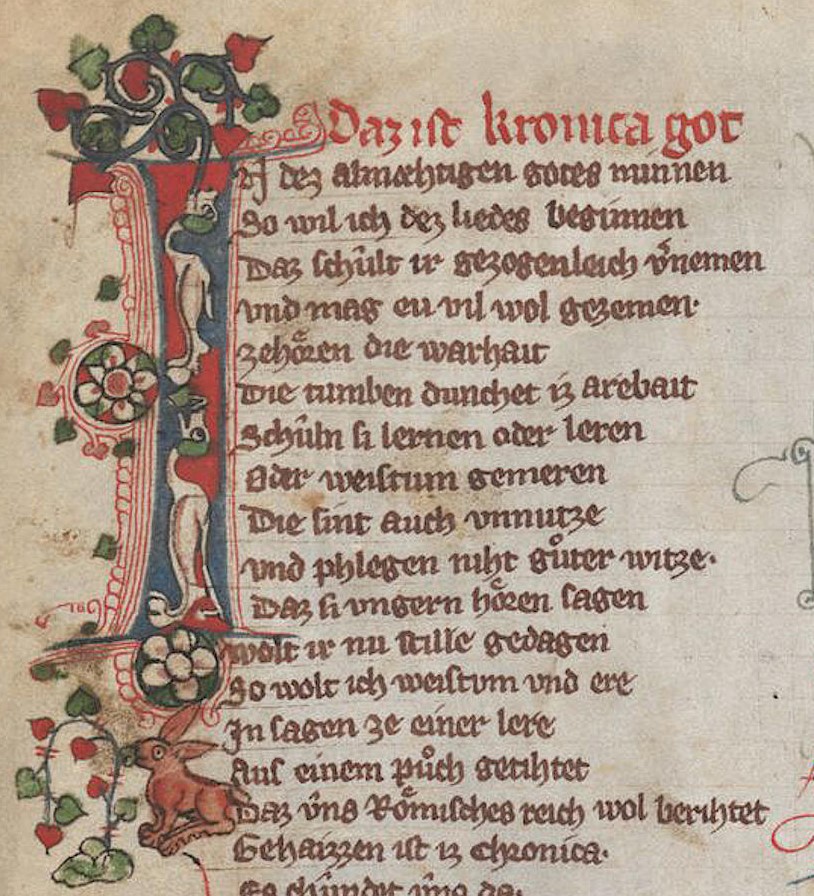 Daz ist kronica got
IN dez almæhtigen gotes minnen
So wil ich dez liedes beginnen
Daz schůlt ir gezogenleich v̊nemen
vnd mag eu vil wol gezemen·
zehoͤren die warhait
Die tumben dunchet iz arebait
Schůln si lernen oder leren
Oder weistum gemeren
Die sint auch vnnutze
vnd phlegen niht gůter witze·
Daz si vngern hoͤren sagen
wolt ir nu stille gedagen
So wolt ich weistvm vnd ere
In sagen ze einer lere
Aus einem půch getihtet
Daz v̊ns Roͤmisches reich wol berihtet
Gehaizzen ist iz chronica·
Es chündet v̊ns da·